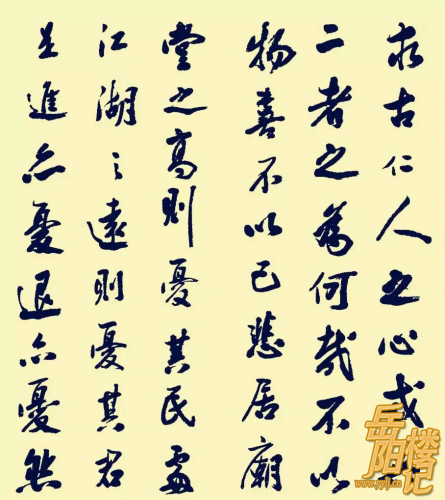 求古仁人之心或
二者之為何哉不以
物喜不以己悲居廟
堂之高則憂其民處
江湖之遠則憂其君
是進亦憂退亦憂然
岳阳楼记